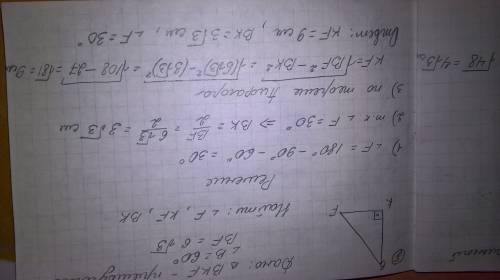 √48 = 4√3 см
②
Дано: △ BKF -
∠B = 60°
BF = 6√3
Найти: ∠F, KF, BK
K
F
Решение
1) ∠F = 180° - 90° - 60° = 30°
2) т.к ∠F = 30° ⇒ BK = BF/2 = 6√3/2 = 3√3 см
3) по теореме Пифагора
KF = √BF² - BK² = √(6√3)² - (3√3)² = √108 - 27 = √81 = 9 см
Ответ: KF = 9 см, BK = 3√3 см, ∠F = 30°